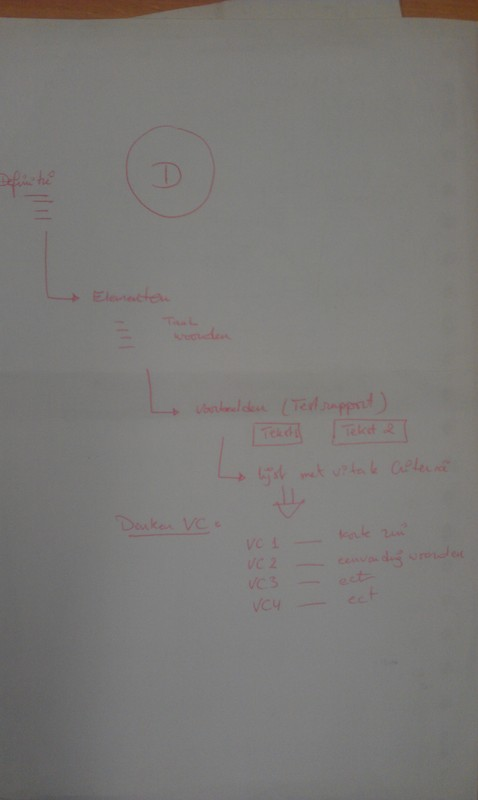 D
Definitie
Elementen
Taak
woorden
Voorbeelden (Testrapport)
Tekst 1
Tekst 2
lijst met vitale Criteria
Denken VC:
VC 1 — korte zin
VC 2 — eenvoudig woorden
VC 3 — ect
VC4 — ect